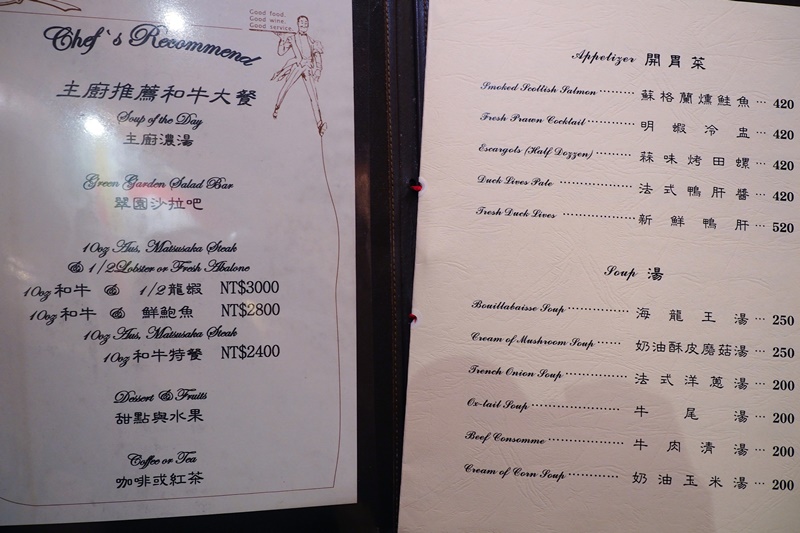 Good food.
Good wine.
Good service.
Chef's Recommend
主廚推薦和牛大餐
Soup of the Day
主廚濃湯
Green Garden Salad Bar
翠園沙拉吧
10oz Aus, Matsusaka Steak
& 1/2 Lobster or Fresh Abalone
10oz和牛 & 1/2龍蝦 NT$3000
10oz和牛 & 鮮鮑魚 NT$2800
10oz Aus, Matsusaka Steak
10oz和牛特餐 NT$2400
Dessert & Fruits
甜點與水果
Coffee or Tea
咖啡或紅茶
Appetizer 開胃菜
Smoked Scottish Salmon 蘇格蘭燻鮭魚 420
Fresh Prawn Cocktail 明蝦冷盅 420
Escargots (Half Dozzen) 蒜味烤田螺 420
Duck Lives Pate 法式鴨肝醬 420
Fresh Duck Lives 新鮮鴨肝 520
Soup 湯
Bouillabaisse Soup 海龍王湯 250
Cream of Mushroom Soup 奶油酥皮磨菇湯 250
Trench Onion Soup 法式洋蔥湯 200
Ox-tail Soup 牛尾湯 200
Beef Consomme 牛肉清湯 200
Cream of Corn Soup 奶油玉米湯 200